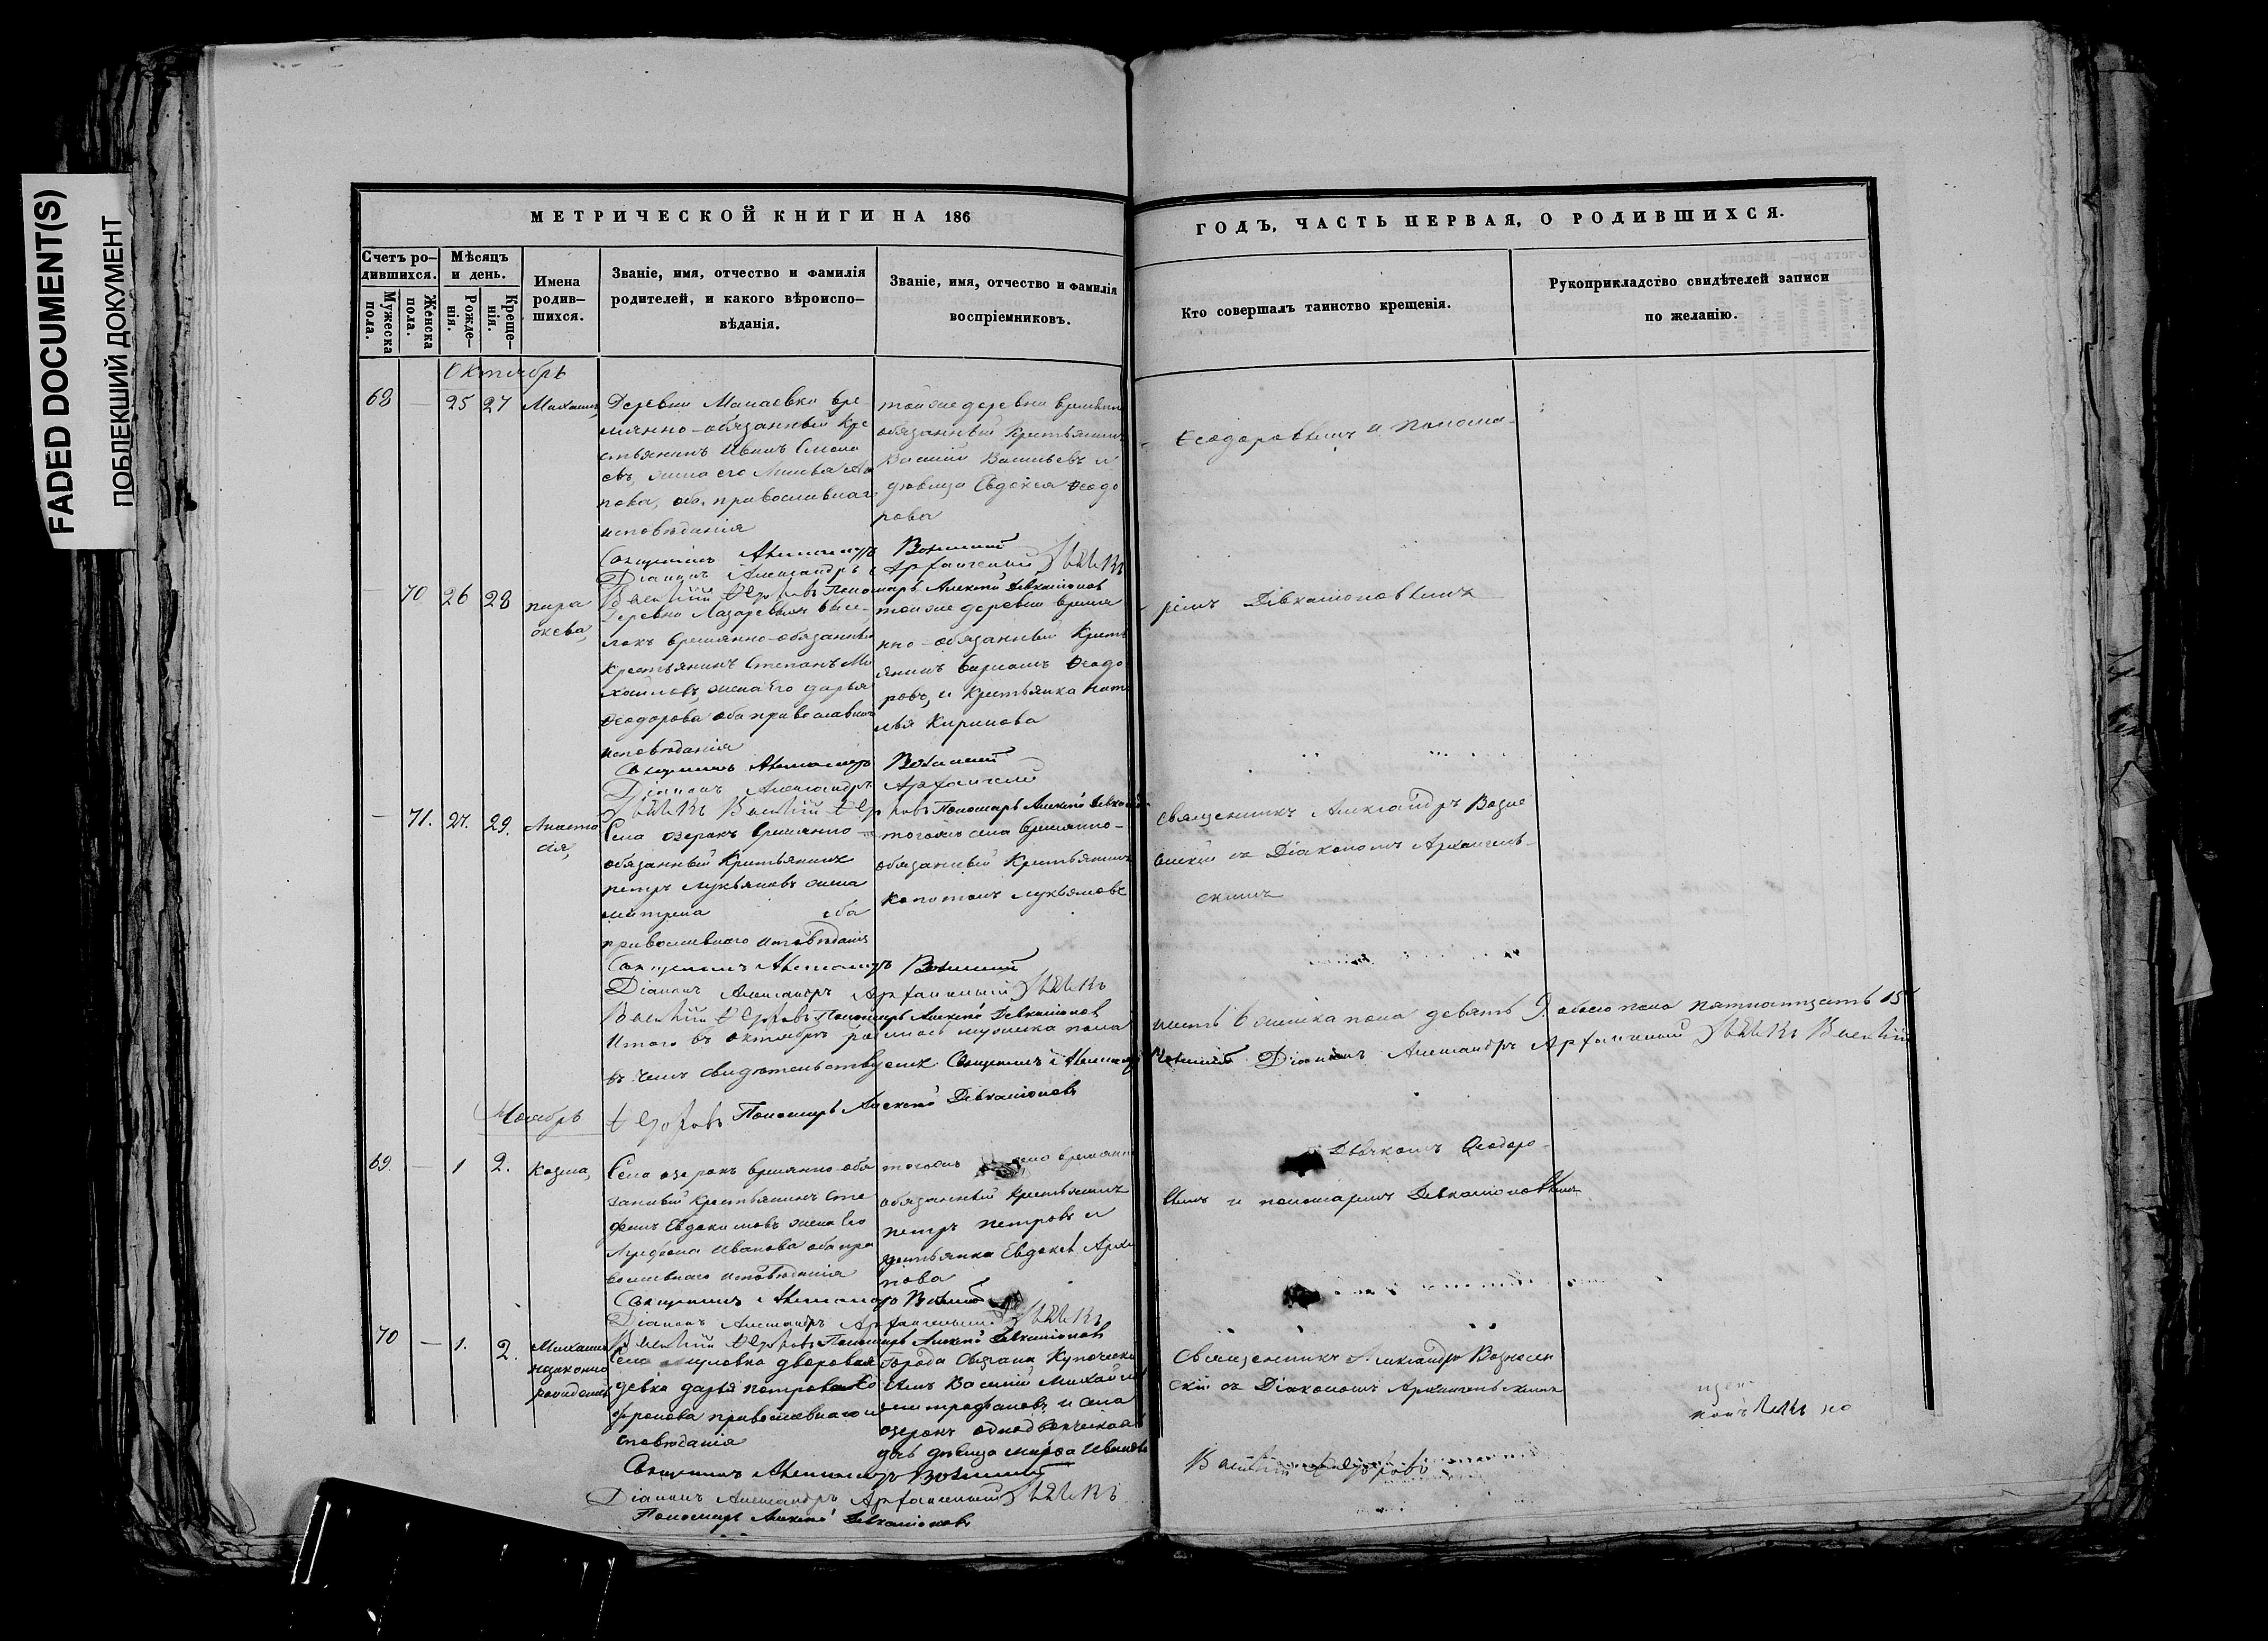 FADED DOCUMENT(S)
ПОБЛЕКШИЙ ДОКУМЕНТ
МЕТРИЧЕСКОЙ КНИГИ НА 186
ГОДЪ, ЧАСТЬ ПЕРВАЯ, О РОДИВШИХСЯ.
Счетъ ро-
дившихся.
Мужеска
пола.
Женска
пола.
Мѣсяцъ
и день.
Рожде-
нія.
Креще-
нія.
Имена
родив-
шихся.
Званіе, имя, отчество и фамилія
родителей, и какого вѣроиспо-
вѣданія.
Званіе, имя, отчество и фамилія
воспріемниковъ.
Кто совершалъ таинство крещенія.
Рукоприкладство свидѣтелей записи
по желанію.
Октябрь
68 — 25 27 Михаилъ,
Деревни вре
мянно-обязанный Кре
стьянинъ Иванъ
евъ, жена его
оба православнаго
исповѣданія
тойже деревни времянно
обязанный Крестьянинъ
Василій Васильевъ и
дѣвица Евдокія Ѳеодо
рова
Ѳеодоровымъ и Понома-
Священникъ Александръ Вознесенскій
Діаконъ Александръ Архангельскій Дьячекъ
Василій Ѳедоровъ Пономарь Алексѣй Девкаліоновъ
— 70 26 28 пара
скева,
Деревни Лазаревыхъ высе-
локъ времянно-обязанный
Крестьянинъ Степанъ Ми
хайловъ, жена Его дарья
Ѳеодорова оба православнаго
исповѣданія
тойже деревни времян
но-обязанный Кресть
янинъ Ѳеодо
ровъ, и Крестьянка Ната
лья Кирилова
ремъ Девкаліоновымъ
Священникъ Александръ Вознесенскій
Діаконъ Александръ Архангельскій
Дьячекъ Василій Ѳедоровъ Пономарь Алексѣй Девкаліоновъ
— 71. 27. 29. Анаста
сія,
Села озерокъ времянно-
обязанный Крестьянинъ
петръ Лукьяновъ жена
оба
православнаго исповѣданія
тогожъ села времянно-
обязанный Крестьянинъ
Капитонъ Лукьяновъ
Священникъ Александръ Возне
сенскій съ Діакономъ Архангель-
скимъ
Священникъ Александръ Вознесенскій
Діаконъ Александръ Архангельскій Дьячекъ
Василій Ѳедоровъ Пономарь Алексѣй Девкаліоновъ
Итого въ октябрѣ родилось мужеска пола шесть 6 женска пола девять 9. обоего пола пятнатцать 15
въ чемъ свидѣтельствуемъ Священникъ Александръ Вознесенскій Діаконъ Александръ Архангельскій Дьячекъ Василій
Ѳедоровъ Пономарь Алексѣй Девкаліоновъ
Ноябрь
69. — 1 2. Козма,
Села озерокъ времянно-обя
занный Крестьянинъ Сте
фанъ Евдокимовъ жена Его
Иванова оба пра
вославнаго исповѣданія
тогожъ села времянно
обязанный Крестьянинъ
петръ петровъ и
крестьянка Евдокія
Дьячкомъ Ѳеодоро-
вымъ и пономаремъ Девкаліоновымъ
Священникъ Александръ Вознесенскій
Діаконъ Александръ Архангельскій Дьячекъ
Василій Ѳедоровъ Пономарь Алексѣй Девкаліоновъ
70 — 1. 2. Михаилъ
незаконно
рожденный
Села дворовая
девка дарья петрова
православнаго и
сповѣданія
Города Сызрани Купеческій
сынъ Василій Михайловъ
митрофановъ и села
озерокъ однодворческая
дочь дѣвица Иванова
Священникъ Александръ Вознесен
скій съ Діакономъ Архангельскимъ
Священникъ Александръ Вознесенскій
Діаконъ Александръ Архангельскій Дьячекъ
Василій Ѳедоровъ
Пономарь Алексѣй Девкаліоновъ